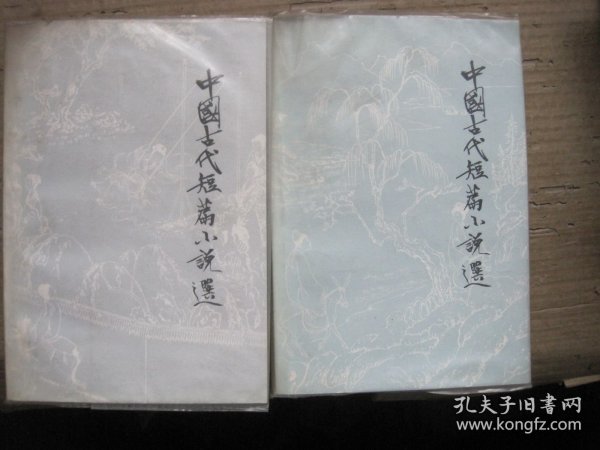 中國古代短篇小說選
中國古代短篇小說選
孔夫子旧书网
www.kongfz.com